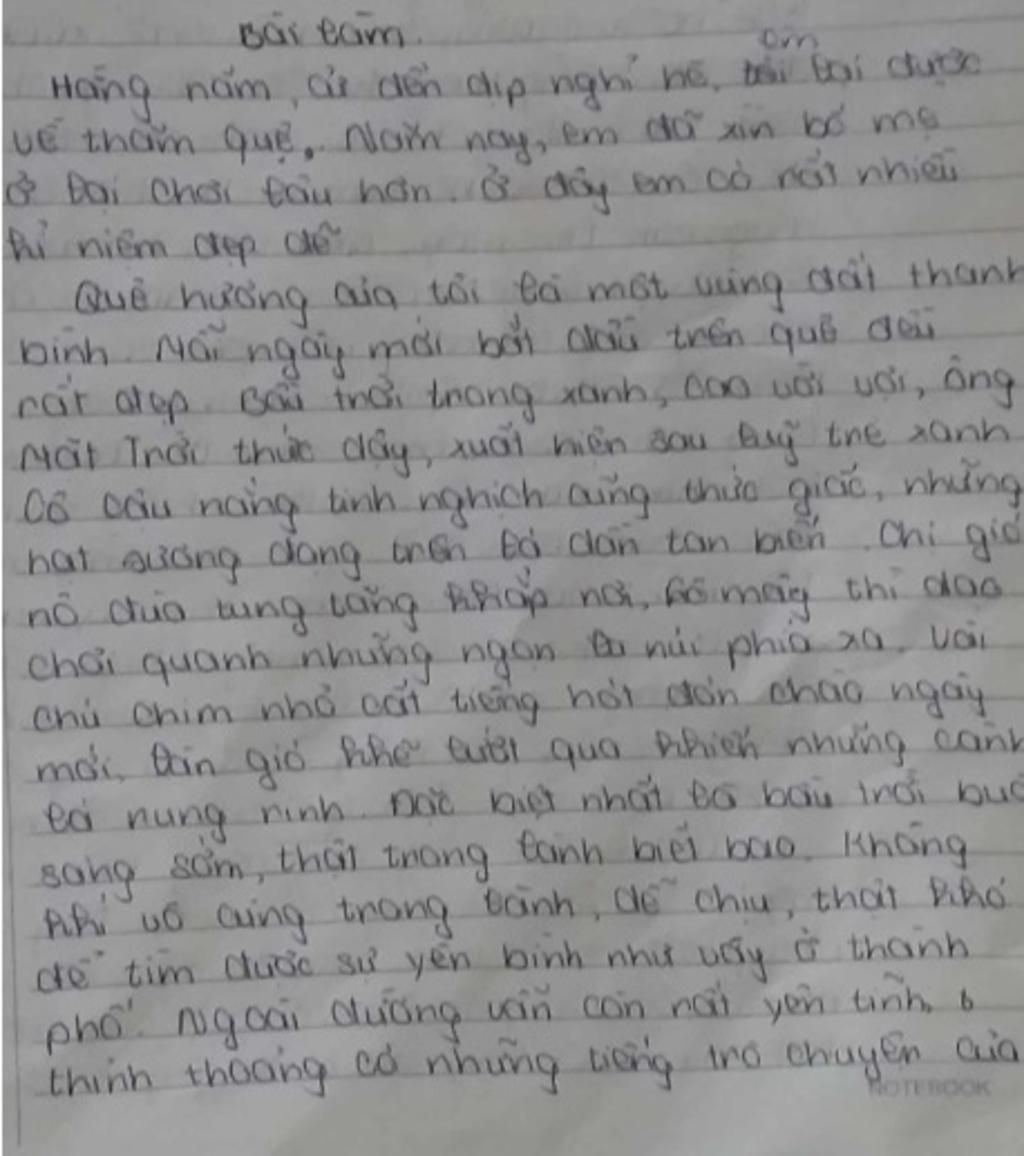 Bài làm.
Hằng năm, cứ đến dịp nghỉ hè, em lại được
về thăm quê. Năm nay, em đã xin bố mẹ
ở lại chơi lâu hơn. Ở đây em có rất nhiều
kỉ niệm đẹp đẽ
Quê hương của tôi là một vùng đất thanh
bình. Mỗi ngày mới bắt đầu trên quê đều
rất đẹp. Bầu trời trong xanh, cao vời vợi, ông
Mặt Trời thức dậy, xuất hiện sau luỹ tre xanh
Cô cậu nắng tinh nghịch cũng thức giấc, những
hạt sương đọng trên lá dần tan biến. Chị gió
nô đùa tung tăng khắp nơi, cô mây thì dạo
chơi quanh những ngọn núi phía xa. Vài
chú chim nhỏ cất tiếng hót đón chào ngày
mới. Làn gió khẽ lướt qua khiến những cành
lá rung rinh. Đặc biệt nhất là bầu trời buổi
sáng sớm, thật trong lành biết bao. Không
khí vô cùng trong lành, dễ chịu, thật khó
để tìm được sự yên bình như vậy ở thành
phố. Ngoài đường vẫn còn rất yên tĩnh,
thỉnh thoảng có những tiếng trò chuyện của
NOTEBOOK